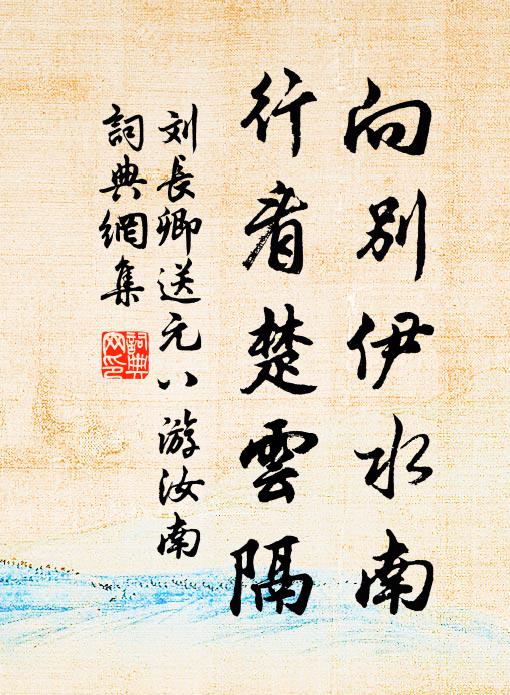 向别伊水南
行看楚雲隔
刘長卿送元八游汝南
詞典網集
詞典
网印